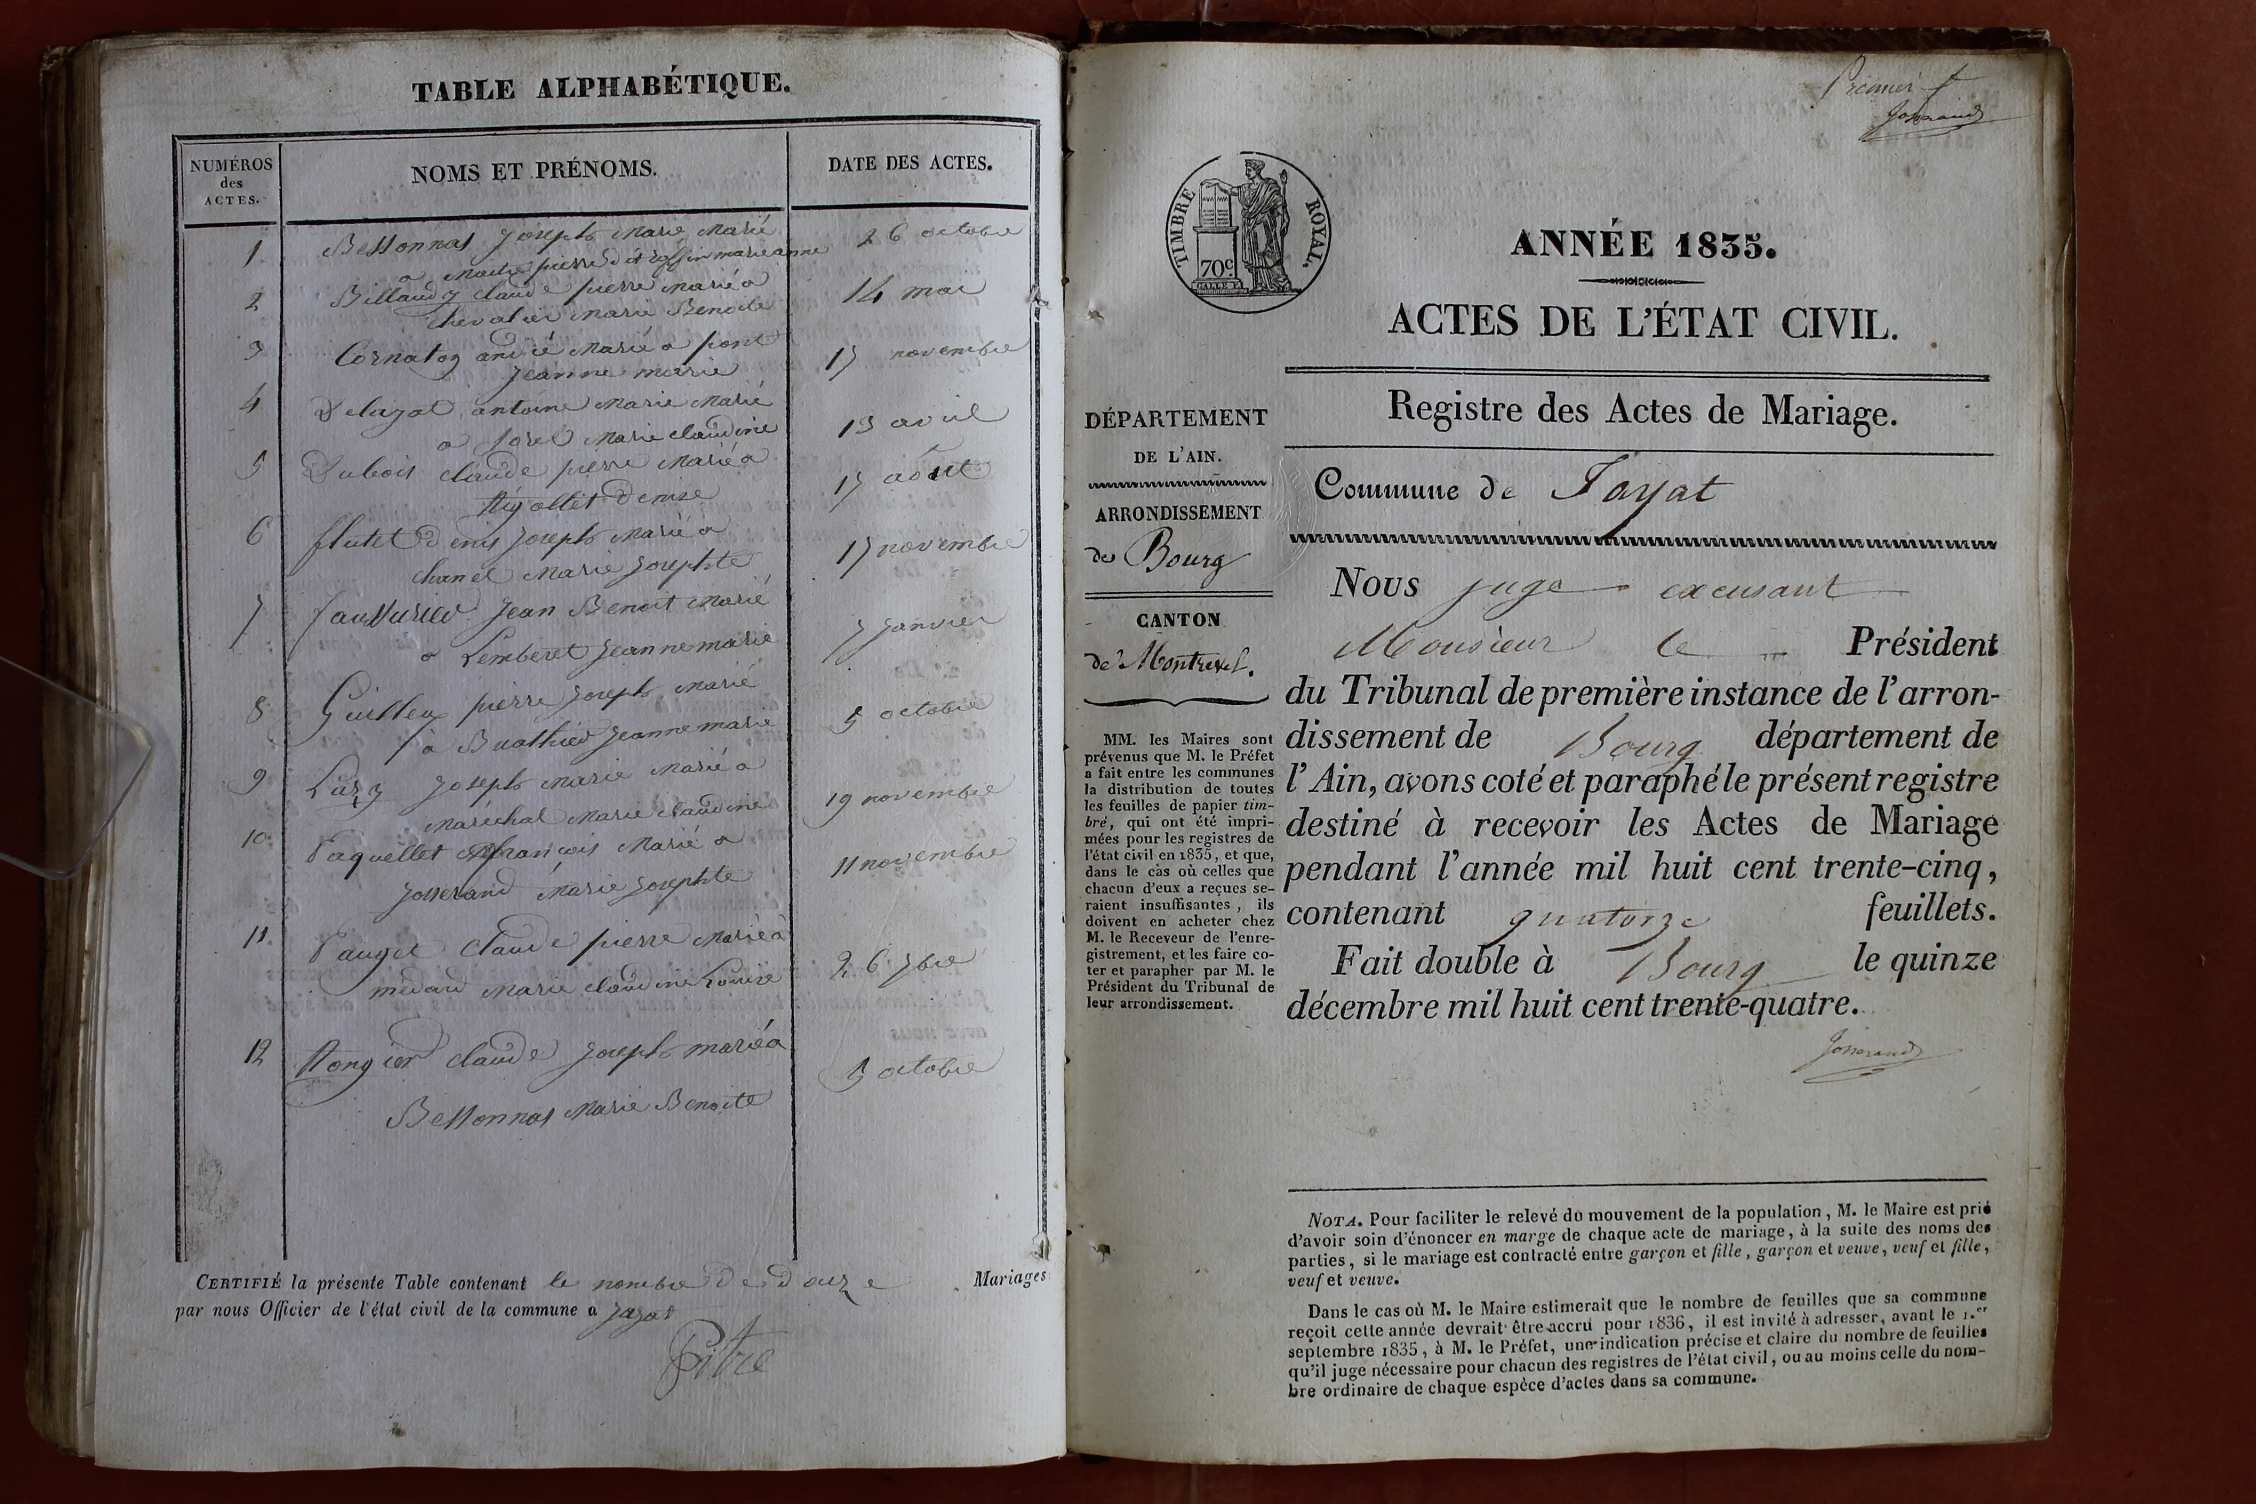 TABLE ALPHABÉTIQUE.
NUMÉROS
des
ACTES.
NOMS ET PRÉNOMS.
DATE DES ACTES.
1 Bessonnas Joseph Marie Marié 26 octobre
a pierre dit marie anne
2 Billaudy claude pierre Marié a 14 mai
chevalier Marie Benoite
3 Cornaton andré Marié a pont 17 novembre
Jeanne marie
4 Delayat antoine Marie Marié 13 avril
a forel Marie claudine
5 Dubois claude pierre Marié a 17 aôut
Rigollet Denise
6 flutet denis Joseph Marié a 17 novembre
chanel Marie Josephte
7 Jean Benoit Marié 7 Janvier
a Lemberet Jeanne marie
8 Guilleu pierre Joseph Marié 5 octobre
à Buathier Jeanne marie
9 Joseph Marie Marié a 19 novembre
Maréchal Marie claudine
10. Paquellet françois Marié a 11 novembre
Josserand Marie Josephte
11. Pauget claude pierre Marié à 26 7bre
médard Marie claudine Louise
12 Rongier claude Joseph marié a 5 octobre
Bessonnas Marie Benoite
CERTIFIÉ la présente Table contenant le nombre de douze Mariages
par nous Officier de l'état civil de la commune a Jayat
Pitre
Premier f
Josserand
TIMBRE ROYAL.
70c
ANNÉE 1835.
ACTES DE L'ÉTAT CIVIL.
Registre des Actes de Mariage.
DÉPARTEMENT
DE L'AIN.
ARRONDISSEMENT
de Bourg
CANTON
de Montrevel.
MM. les Maires sont
prévenus que M. le Préfet
a fait entre les communes
la distribution de toutes
les feuilles de papier tim-
bré, qui ont été impri-
mées pour les registres de
l'état civil en 1835, et que,
dans le cas où celles que
chacun d'eux a reçues se-
raient insuffisantes, ils
doivent en acheter chez
M. le Receveur de l'enre-
gistrement, et les faire co-
ter et parapher par M. le
Président du Tribunal de
leur arrondissement.
Commune de Jayat
NOUS juge excusant
Monsieur le Président
du Tribunal de première instance de l'arron-
dissement de Bourg département de
l'Ain, avons coté et paraphé le présent registre
destiné à recevoir les Actes de Mariage
pendant l'année mil huit cent trente-cinq,
contenant quatorze feuillets.
Fait double à Bourg le quinze
décembre mil huit cent trente-quatre.
Josserand
NOTA. Pour faciliter le relevé du mouvement de la population, M. le Maire est prié
d'avoir soin d'énoncer en marge de chaque acte de mariage, à la suite des noms des
parties, si le mariage est contracté entre garçon et fille, garçon et veuve, veuf et fille,
veuf et veuve.
Dans le cas où M. le Maire estimerait que le nombre de feuilles que sa commune
reçoit cette année devrait être accru pour 1836, il est invité à adresser, avant le 1.er
septembre 1835, à M. le Préfet, une indication précise et claire du nombre de feuilles
qu'il juge nécessaire pour chacun des registres de l'état civil, ou au moins celle du nom-
bre ordinaire de chaque espèce d'actes dans sa commune.